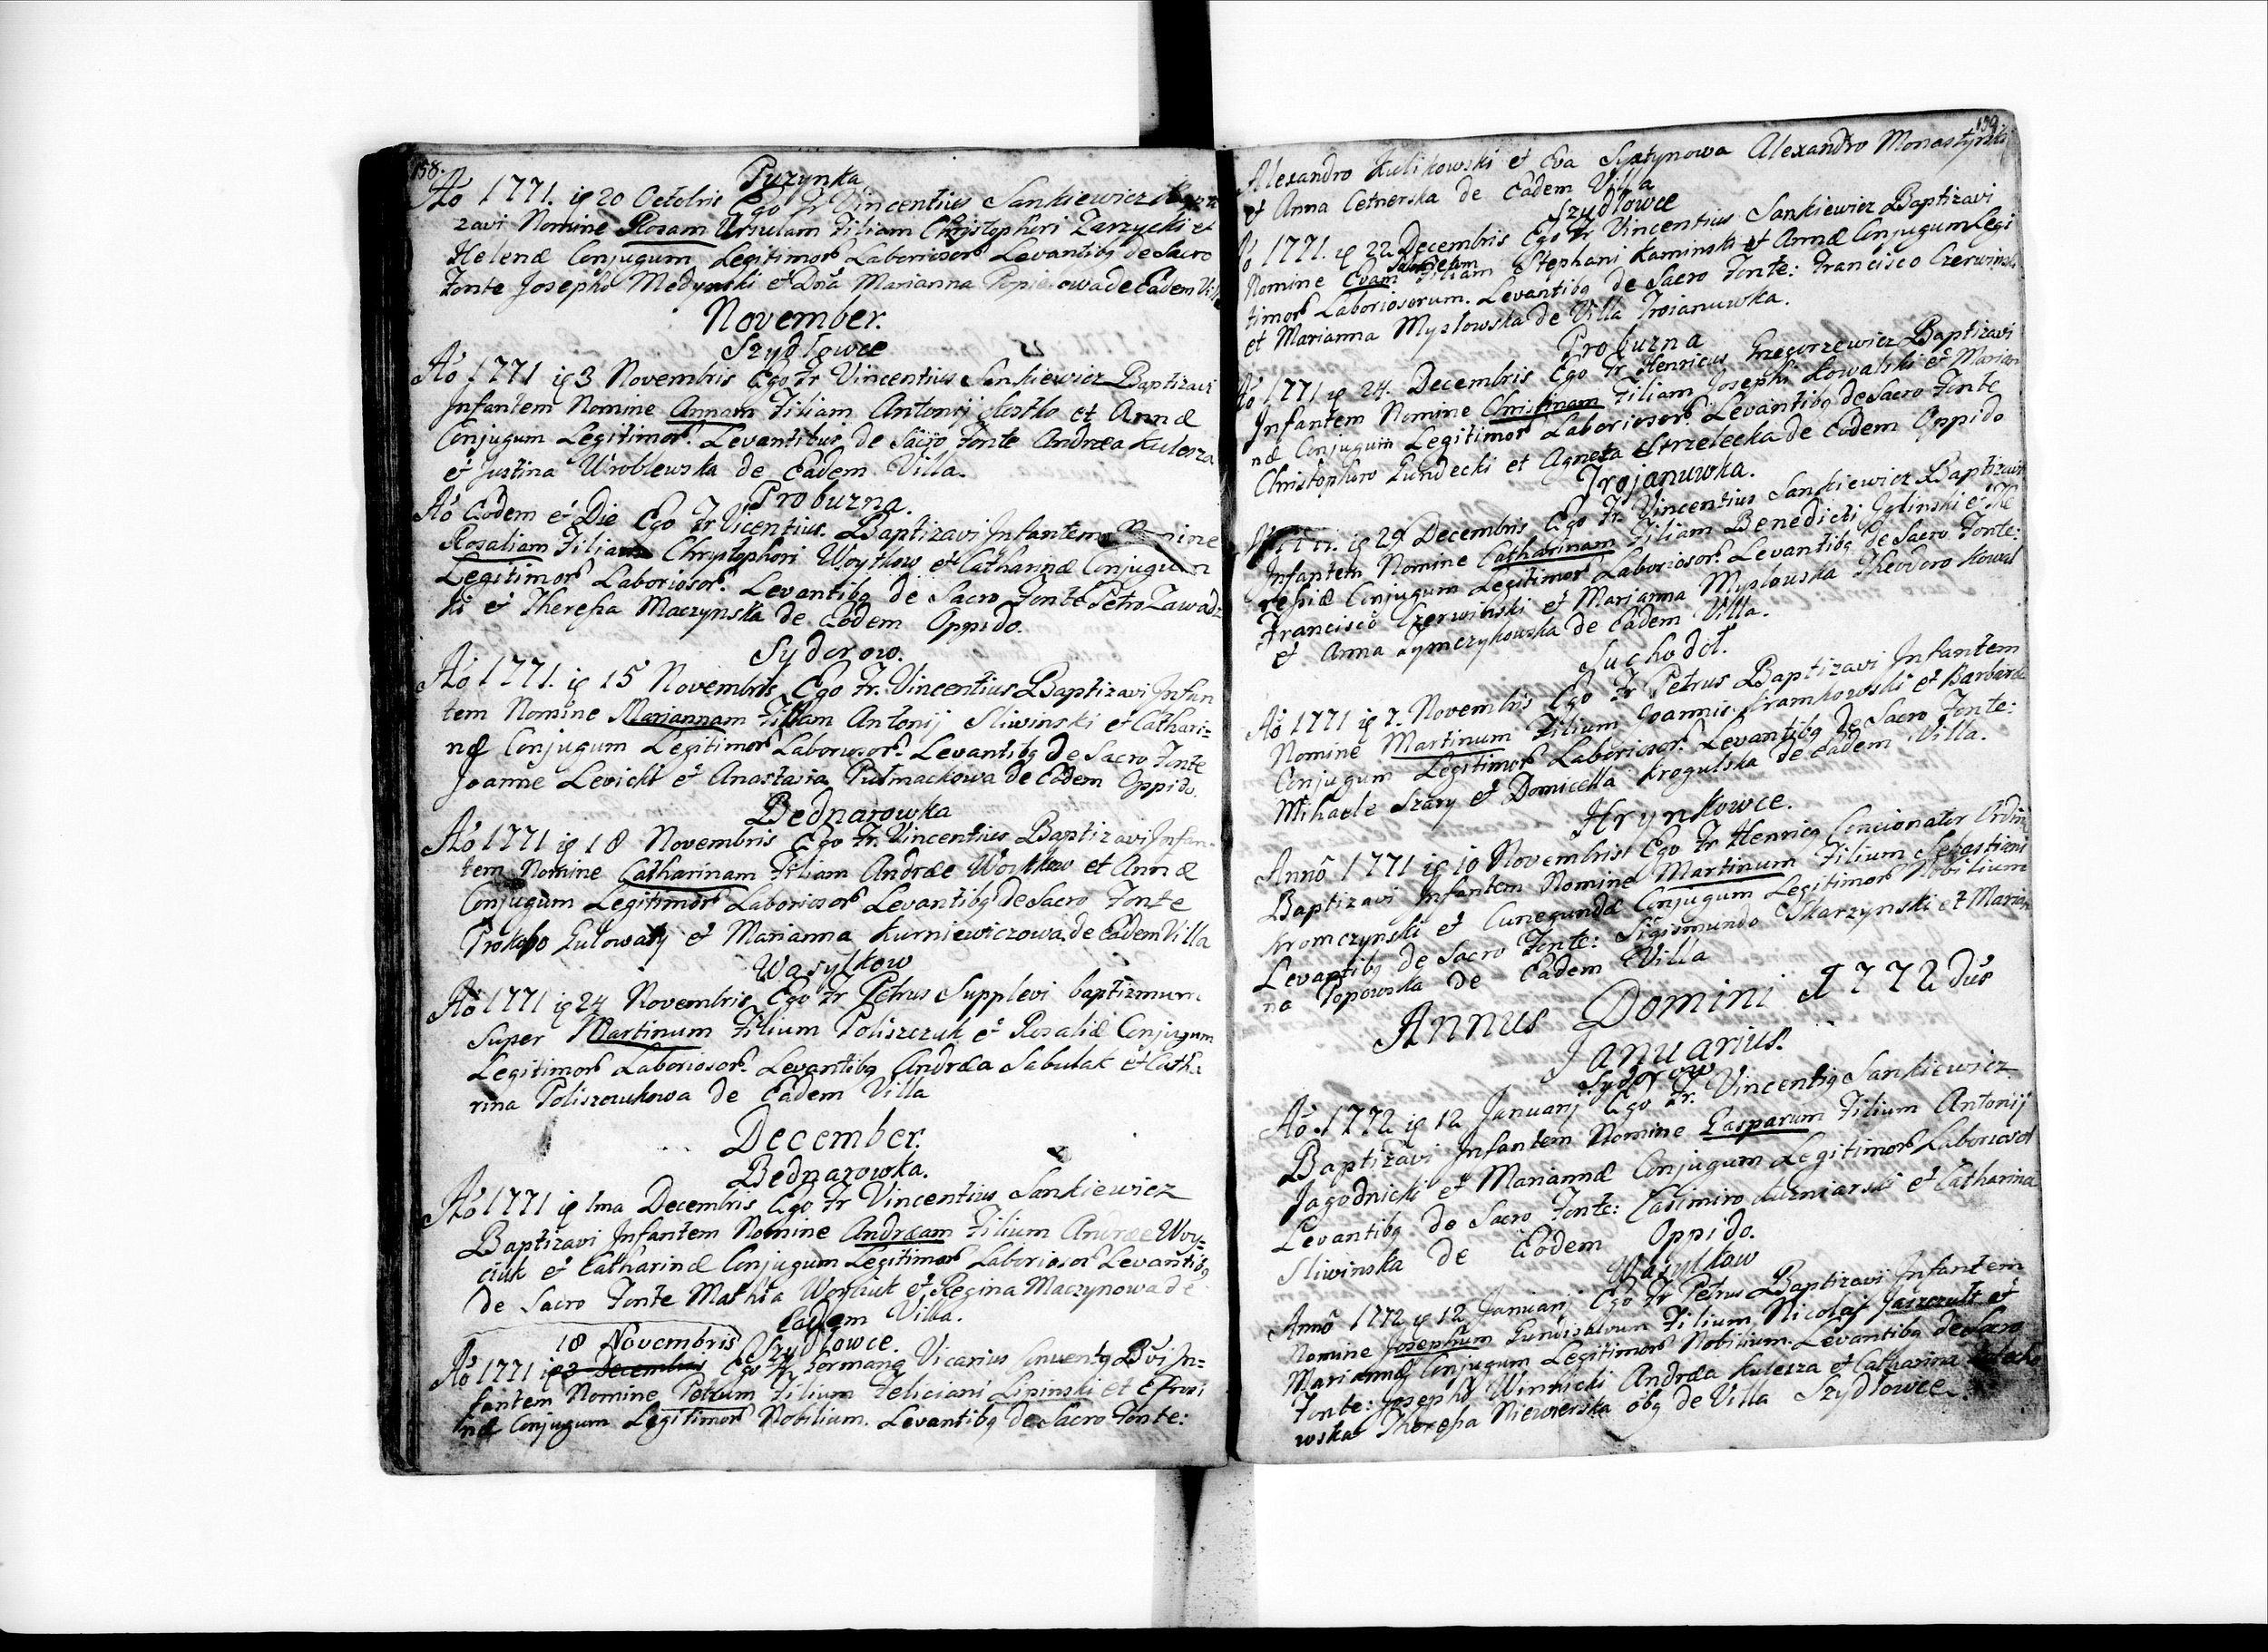 158.
Puzynka
Ao 1771. ig 20 Octobris Ego Fr Vincentius Sankiewicz
zavi Nomine Rosam Ursulam Filiam Chrystophori Zarzycki et
Helenæ Conjugum Legitimor Laboriosor Levantibg de Sacro
Fonte Josepho Medynski et Dna Marianna de Eadem Vil
November.
Szydłowce
Ao 1771 ig 3 Novembris Ego Fr Vincentius Sankiewicz Baptizavi
Infantem Nomine Annam Filiam Antonij Kostko et Annæ
Conjugum Legitimor. Levantibus de Sacro Fonte Andrea Kulesza
et Justina Wroblewska de Eadem Villa.
Proburzna.
Ao Eodem et Die Ego Fr Vicentius. Baptizavi Infantem Nomine
Rosaliam Filiam Chrystophori Woytkow et Catharinæ Conjugum
Legitimor Laboriosor. Levantibg de Sacro Fonte Petro Zawadz
ki et Theresia Maczynska de Eodem Oppido.
Syderow.
Ao 1771. ig 15 Novembris Ego Fr. Vincentius Baptizavi Infan
tem Nomine Mariannam Filiam Antonij Sliwinski et Cathari=
næ Conjugum Legitimor Laboriosor. Levantibg de Sacro Fonte
Joanne Levicki et Anastasia Putmackowa de Eodem Oppido.
Bednarowka
Ao 1771 ig 18 Novembris Ego Fr. Vincentius Baptizavi Infan-
tem Nomine Catharinam Filiam Andræe Woytkow et Annæ
Conjugum Legitimor Laboriosor Levantibg de Sacro Fonte
Prokopo Gulowaty et Marianna Kurniewiczowa de Eadem Villa
Wasylkow
Ao 1771 ig 24 Novembris Ego Fr Petrus Supplevi baptizmum
Super Martinum Filium Poliszczuk et Rosaliæ Conjugum
Legitimor Laboriosor. Levantibg Andræa Sabulak et Catha
rina Poliszczukowa de Eadem Villa
December.
Bednarowka.
Ao 1771 ig 1ma Decembris Ego Fr Vincentius Sankiewicz
Baptizavi Infantem Nomine Andræam Filium Andræe Woy=
ciuk et Catharinæ Conjugum Legitimor Laboriosor Levantibg
de Sacro Fonte Mathia Woyciuk et Regina Maczynowa de
Eadem Villa.
18 Novembris Szydłowce.
Ao 1771 ig 3 Decembris Ego Fr Germang Vicarius Conventg Bvi In=
fantem Nomine Petrum Filium Feliciani Lipinski et Efrosi
næ Conjugum Legitimor Nobilium. Levantibg de Sacro Fonte:
159.
Alexandro Kulikowski et Eva Syxtynowa Alexandro Monastyrski
et Anna Cetnerska de Eadem Villa
Szydłowce
Ao 1771. ig 22 Decembris Ego Fr Vincentius Sankiewicz Baptizavi
Nomine Evam Filiam Stephani Kaminski et Annæ Conjugum Legi
timor Laboriosorum. Levantibg de Sacro Fonte: Francisco Czerwinski
et Marianna Mysłowska de Villa Troianuwka.
Proburzna
Ao 1771 ig 24. Decembris Ego Fr Henricus Grzegorzewicz Baptizavi
Infantem Nomine Christinam Filiam Josephi Kowalski et Marian
næ Conjugum Legitimor Laboriosor. Levantibg de Sacro Fonte
Christophoro Gundecki et Agneta Strzelecka de Eodem Oppido
Trojanuwka.
1771. ig 29 Decembris Ego Fr. Vincentius Sankiewicz Baptizavi
Infantem Nomine Catharinam Filiam Benedicti Golinski et The
resiæ Conjugum Legitimor Laboriosor. Levantibg de Sacro Fonte:
Francisco Czerwinski et Marianna Mysłowska Theodoro Kowal
et Anna Tymczykowska de Eadem Villa.
Suchodoł.
Ao 1771 ig 7. Novembris Ego Fr Petrus Baptizavi Infantem
Nomine Martinum Filium Joannis Kramkowski et Barbaræ
Conjugum Legitimor Laboriosor. Levantibg de Sacro Fonte:
Mihaele Szary et Domicella Krogulska de Eadem Villa.
Hrynkowce.
Anno 1771 ig 10 Novembris Ego Fr Henricg Concionator Ordin
Baptizavi Infantem Nomine Martinum Filium Sebastiani
Kromczynski et Cunegundæ Conjugum Legitimor Nobilium
Levantibg de Sacro Fonte: Sigismundo Skarzynski et Marian
na Popowska de Eadem Villa
Annus Domini 1772dus
Januarius.
Sydorow
Ao. 1772 ig 12 Januarij Ego Fr. Vincentig Sankiewicz
Baptizavi Infantem Nomine Gasparum Filium Antonij
Jagodnicki et Mariannæ Conjugum Legitimor Laboriosor
Levantibg de Sacro Fonte: Casimiro Kuzniarski et Catharina
Sliwinska de Eodem Oppido.
Wasylkow
Anno 1772 ig 12 Januarij Ego Fr Petrus Baptizavi Infantem
Nomine Josephum Filium Nicolaj Jaszczułt et
Mariannæ Conjugum Legitimor Nobilium. Levantibg de Sacro
Fonte: Josepho Winnicki Andræa Kulesza et Catharina
wska Theresia Niewierska obg de Villa Szydłowce.